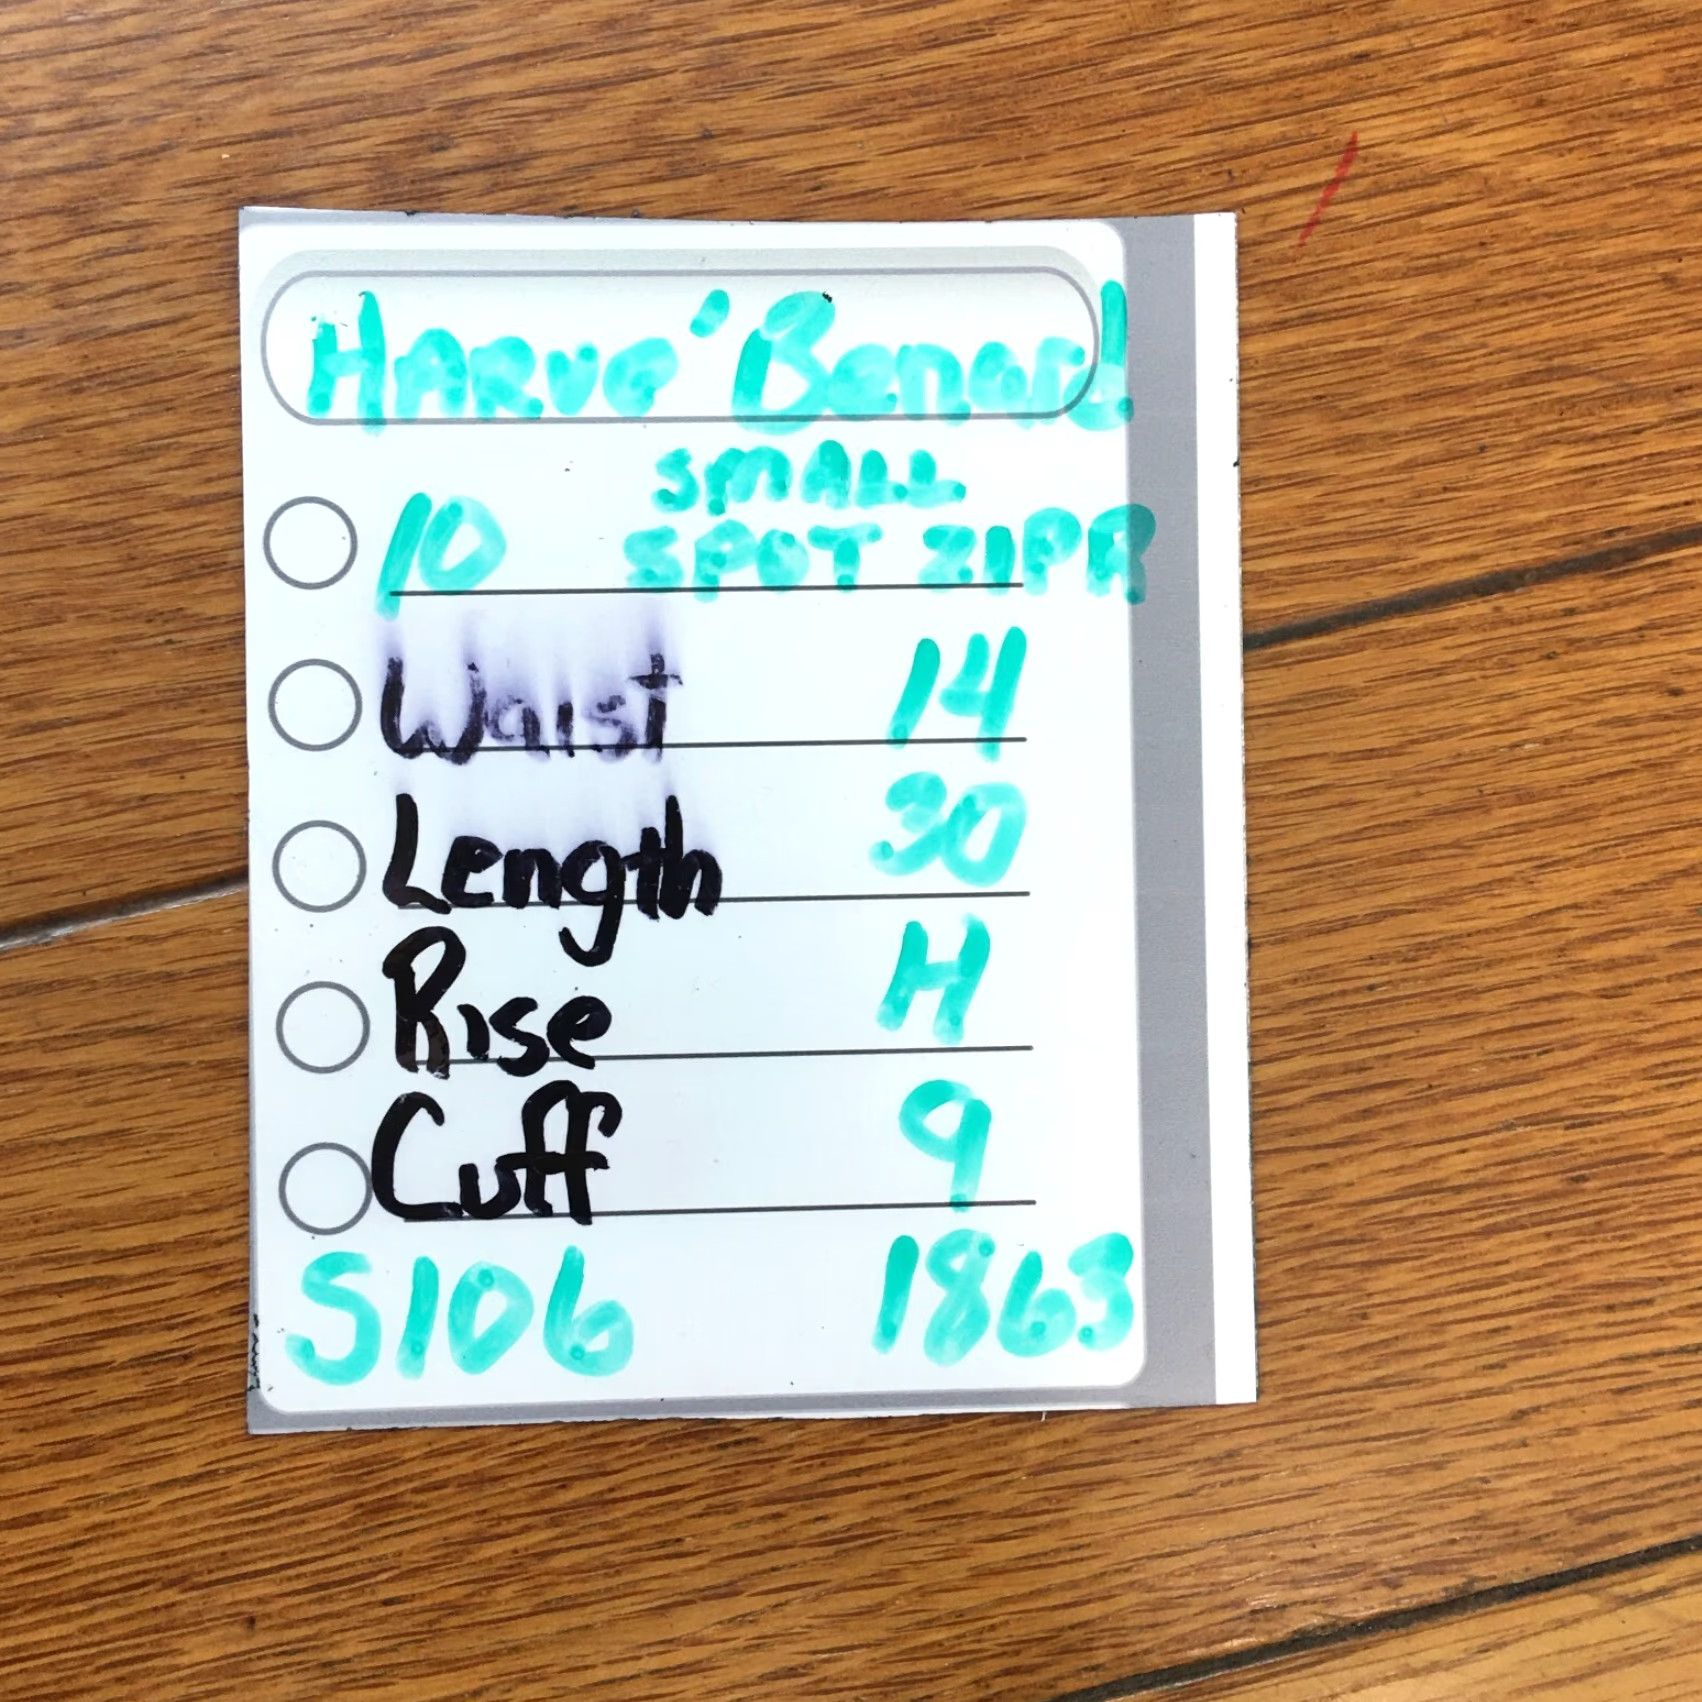 HARve' Benard
SMALL
10 SPOT ZIPR
Waist 14
Length 30
Rise H
Cuff 9
S106 1863